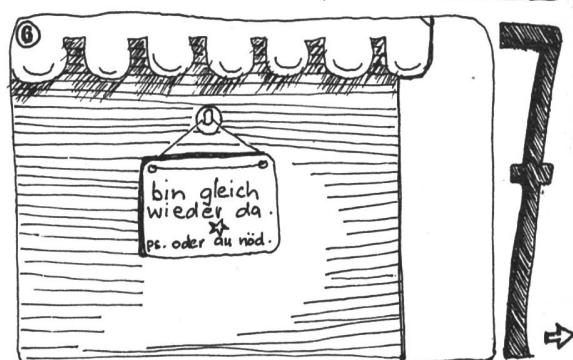 6
bin gleich
wieder da.
ps. oder au nöd.